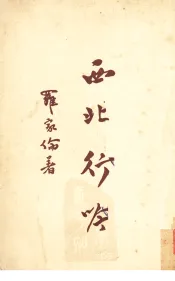 西北行吟
羅家倫著